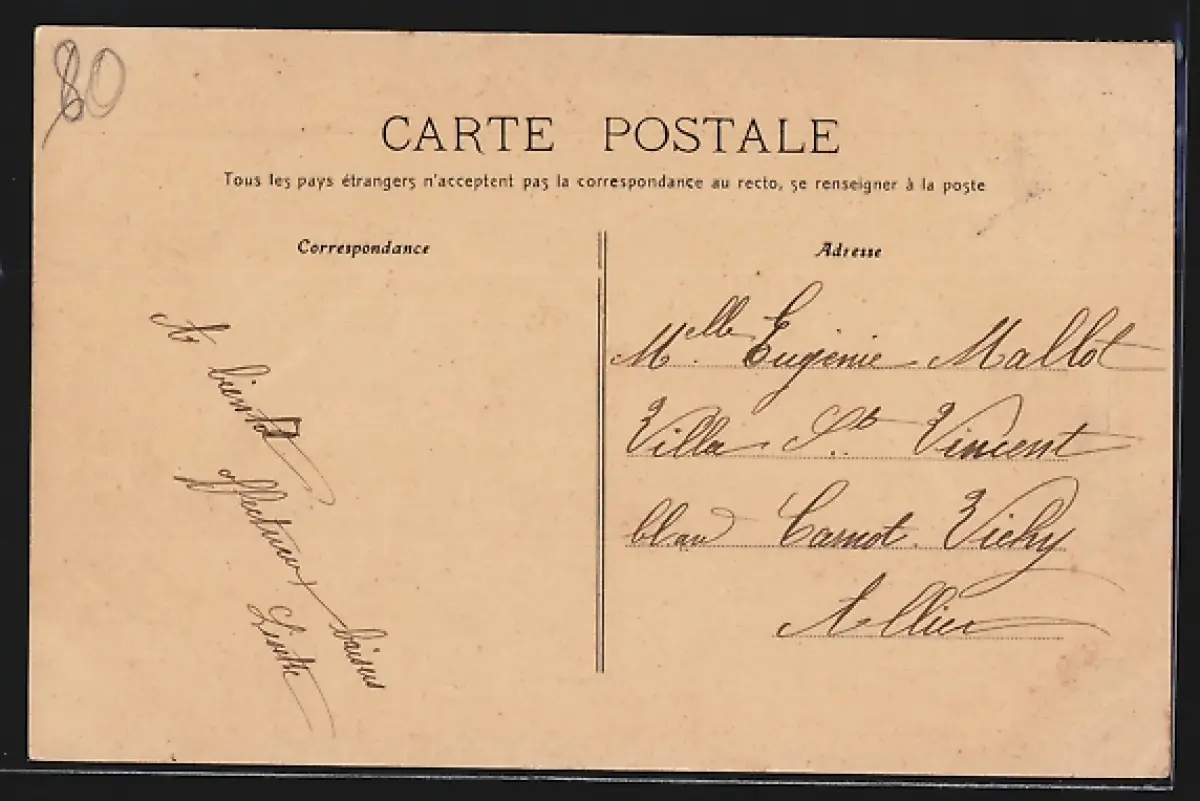 80
CARTE POSTALE
Tous les pays étrangers n'acceptent pas la correspondance au recto, se renseigner à la poste
Correspondance
A
bientôt
affectueux
baisers
Adresse
Melle Eugénie Mallot
Villa St. Vincent
Carnot Vichy
Allier